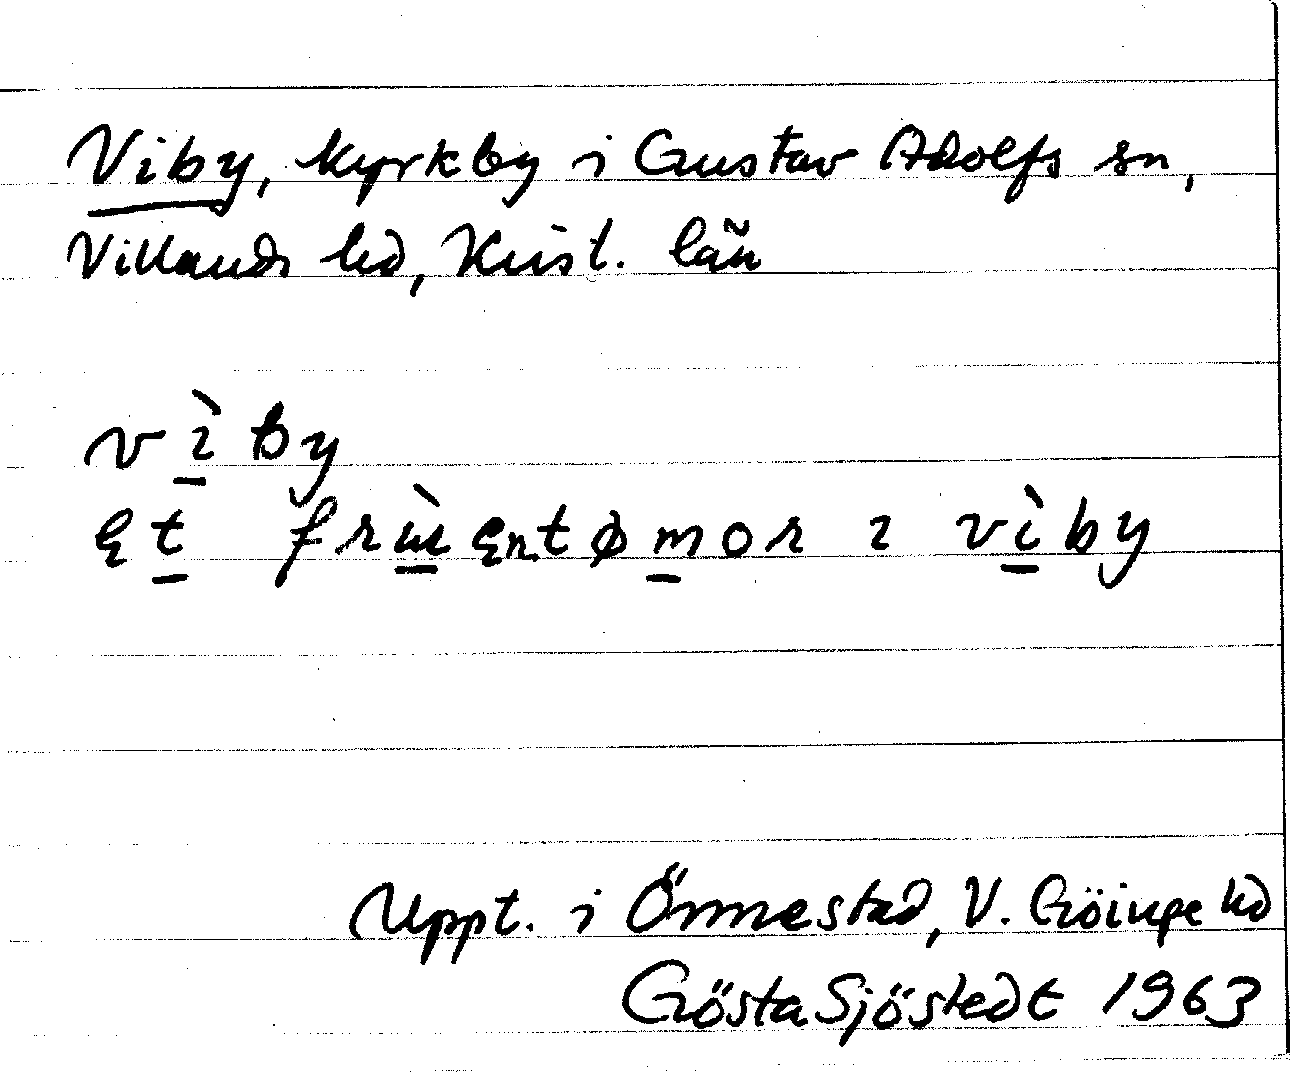 Viby, kyrkby i Gustav Adolfs sn,
Villands hd, Krist. län
vìby
et i vìby
Uppt. i Önnestad, V. Göinge hd
Gösta Sjöstedt 1963